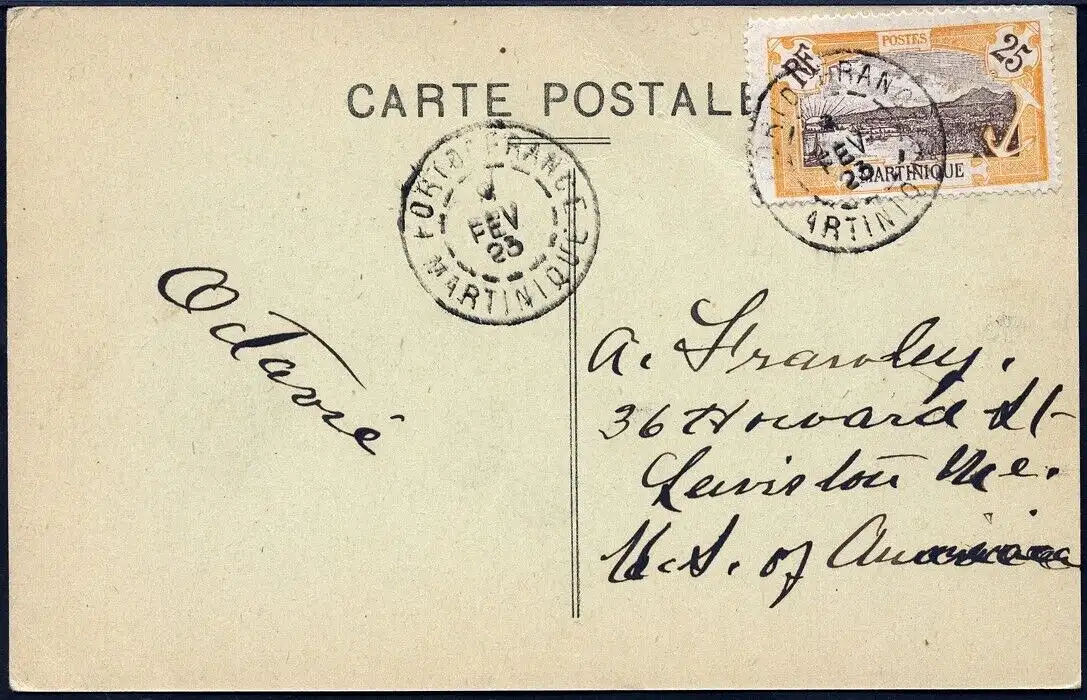 CARTE POSTALE
POSTES
RF
25
MARTINIQUE
FORT DE FRANCE
FEV
MARTINIQUE
FORT DE FRANCE
FEV
MARTINIQUE
Octavie
A. Frawley.
36 Howard St
Lewiston Me.
U.S. of America